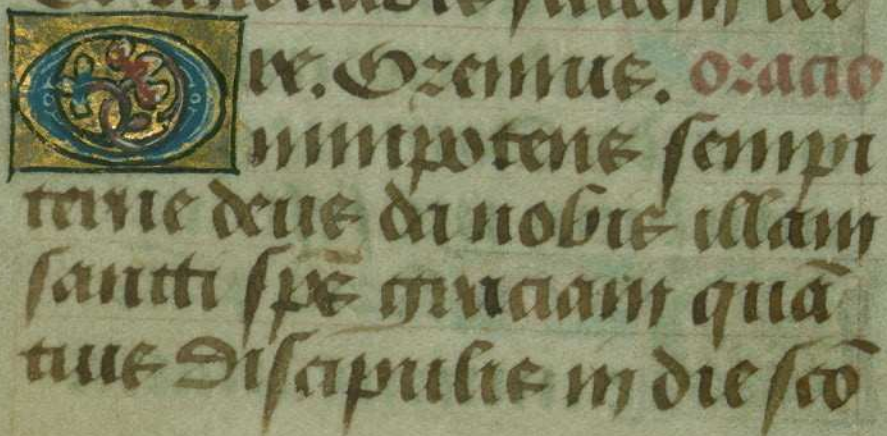 re. Oremus. oracio
Omnipotens sempi
terne deus da nobis illam
sancti sp̄s graciam quā
tuis discipulis in die scō